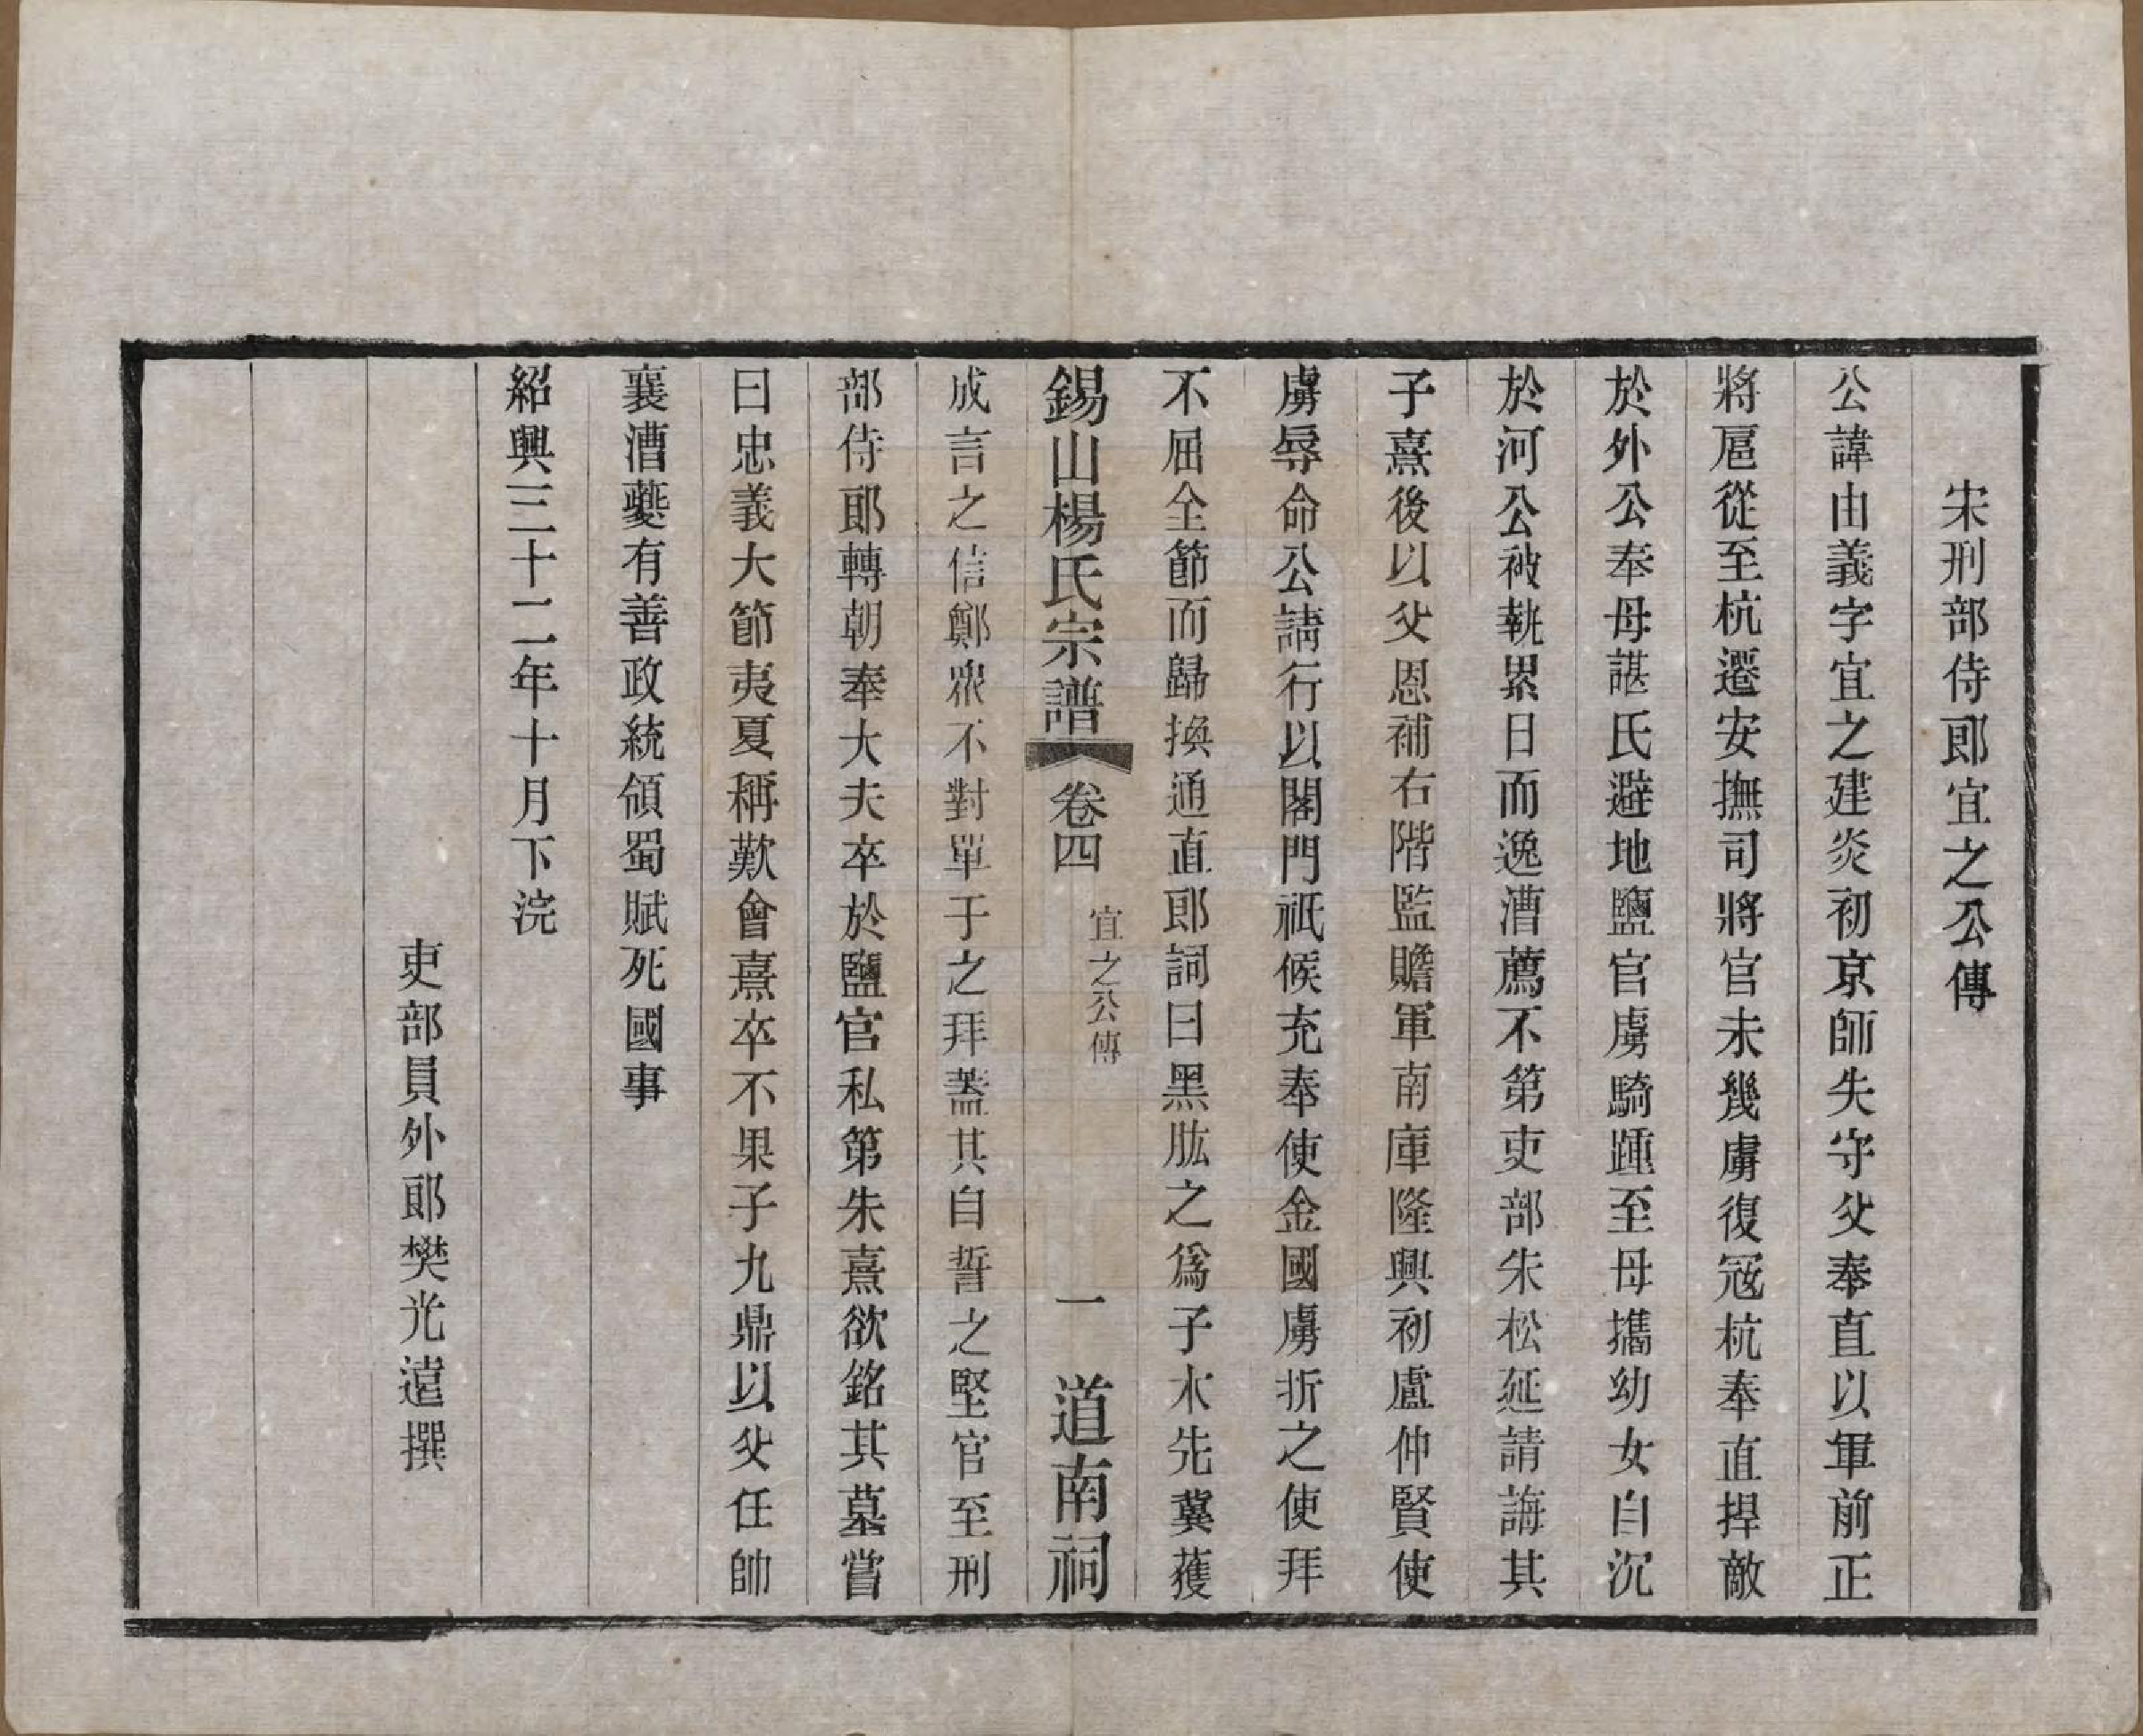 宋刑部侍郎宜之公傳
公諱由義字宜之建炎初京師失守父奉直以軍前正
將扈從至杭遷安撫司將官未幾虜復冦杭奉直捍敵
於外公奉母諶氏避地鹽官虜騎踵至母攜幼女自沉
於河公被執累日而逸漕薦不第吏部朱松延請誨其
子熹後以父恩補右階監贍軍南庫隆興初盧仲賢使
虜辱命公請行以閤門祗候充奉使金國虜折之使拜
不屈全節而歸換通直郎詞曰黑肱之爲子木先冀獲
錫山楊氏宗譜 卷四 宜之公傳 一 道南祠
成言之信鄭衆不對單于之拜葢其自誓之堅官至刑
部侍郎轉朝奉大夫卒於鹽官私第朱熹欲銘其墓嘗
曰忠義大節夷夏稱歎會熹卒不果子九鼎以父任帥
襄漕夔有善政統領蜀賦死國事
紹興三十二年十月下浣
吏部員外郎樊光遠撰